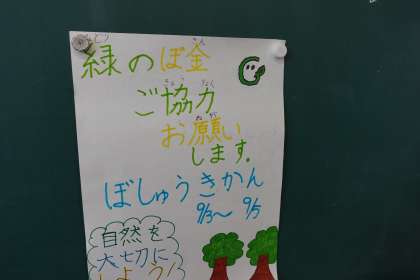 緑のぼ金
ご協力
お願い
します.
ぼしゅうきかん
9/3〜 9/5
自然を
大切に
しよう!